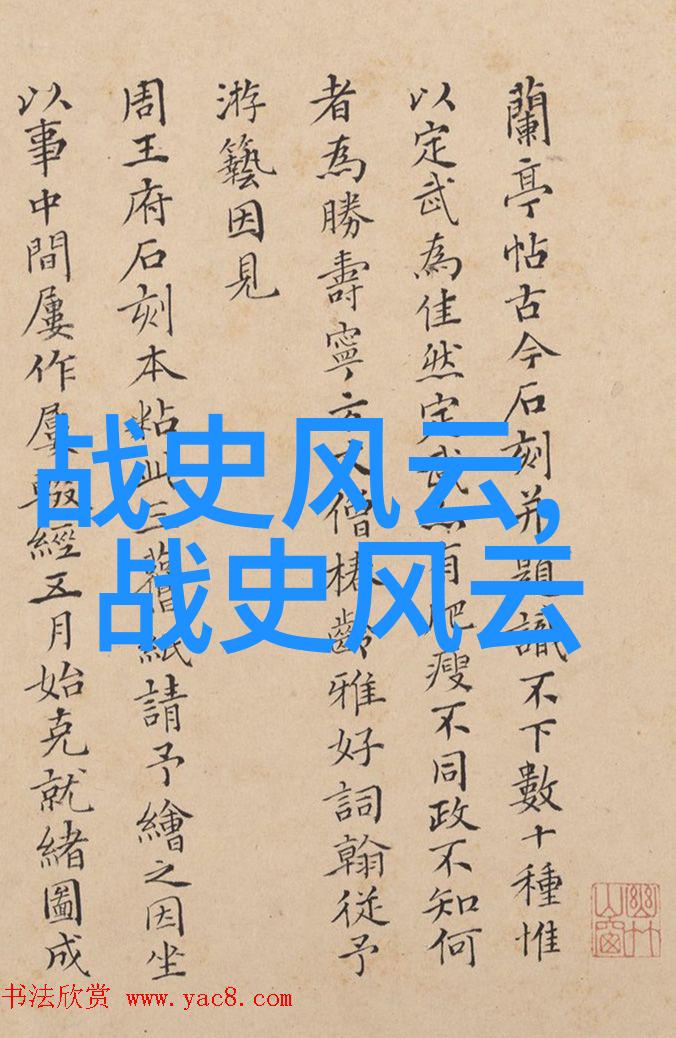 蘭亭帖古今石刻并題識不下數十種惟
以定武為佳然定武有肥瘦不同政不知何
者為勝壽寧方丈僧椿齡雅好詞翰從予
游藝因見
周王府石刻本粘此三舊紙請予繪之因坐
以事中間屢作屢輟經五月始克就緒圖成
战史风云,
战史风云
幽竹山窗
书法欣赏 www.yac8.com